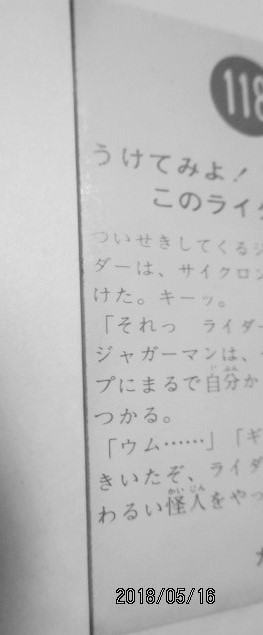 118
うけてみよ!
このライ
ついせきしてくるジ
ダーは、サイクロン
けた。キーッ。
「それっ　ライダー
ジャガーマンは、
プにまるで自分か
つかる。
「ウム……」「ギ
きいたぞ、ライダ
わるい怪人をやっ
2018/05/16